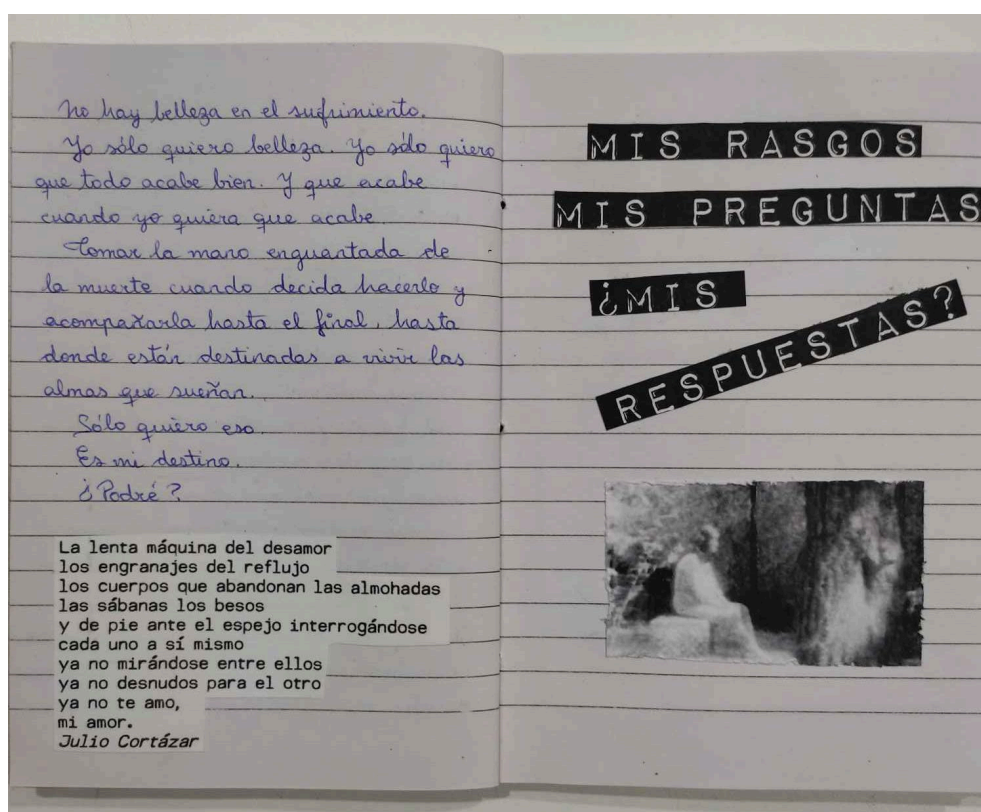 No hay belleza en el sufrimiento.
Yo sólo quiero belleza. Yo sólo quiero
que todo acabe bien. Y que acabe
cuando yo quiera que acabe.
Tomar la mano enguantada de
la muerte cuando decida hacerlo y
acompañarla hasta el final, hasta
donde están destinadas a vivir las
almas que sueñan.
Sólo quiero eso.
Es mi destino.
¿Podré?
La lenta máquina del desamor
los engranajes del reflujo
los cuerpos que abandonan las almohadas
las sábanas los besos
y de pie ante el espejo interrogándose
cada uno a sí mismo
ya no mirándose entre ellos
ya no desnudos para el otro
ya no te amo,
mi amor.
Julio Cortázar
MIS RASGOS
MIS PREGUNTAS
¿MIS
RESPUESTAS?